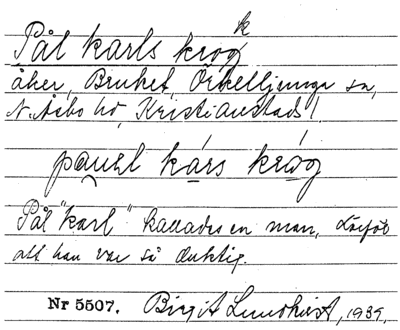 Pål karls krog k
åker, Bruket, Örkelljunga sn,
N. Åsbo hd, Kristianstads l
pauel kárs króg
Pål "karl" kallades en man, därför
att han var så duktig.
Nr 5507. Birgit Lundkvist, 1939.